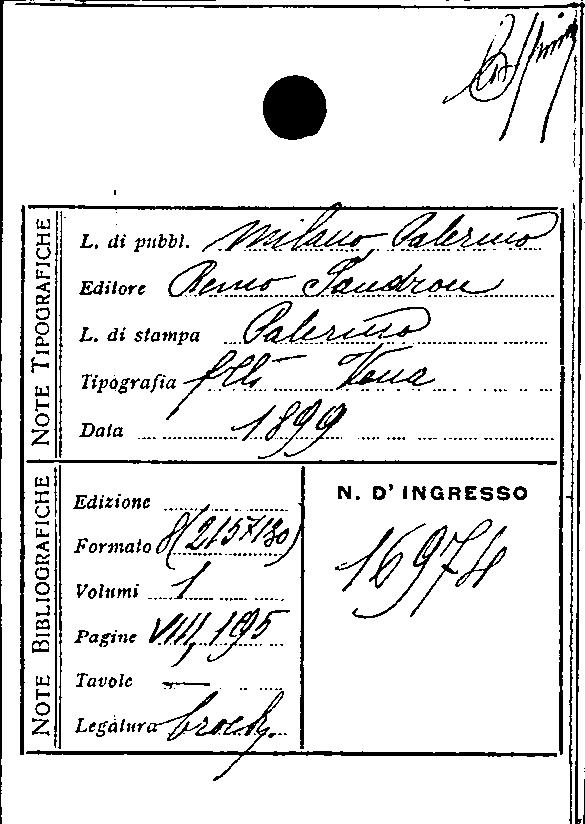 NOTE TIPOGRAFICHE
L. di pubbl. Milano, Palermo
Editore Remo Sandron
L. di stampa Palermo
Tipografia flli Vena
Data 1899
NOTE BIBLIOGRAFICHE
Edizione
Formato 8 (215×130)
Volumi 1
Pagine VIII, 195
Tavole —
Legatura broch.
N. D'INGRESSO
16974